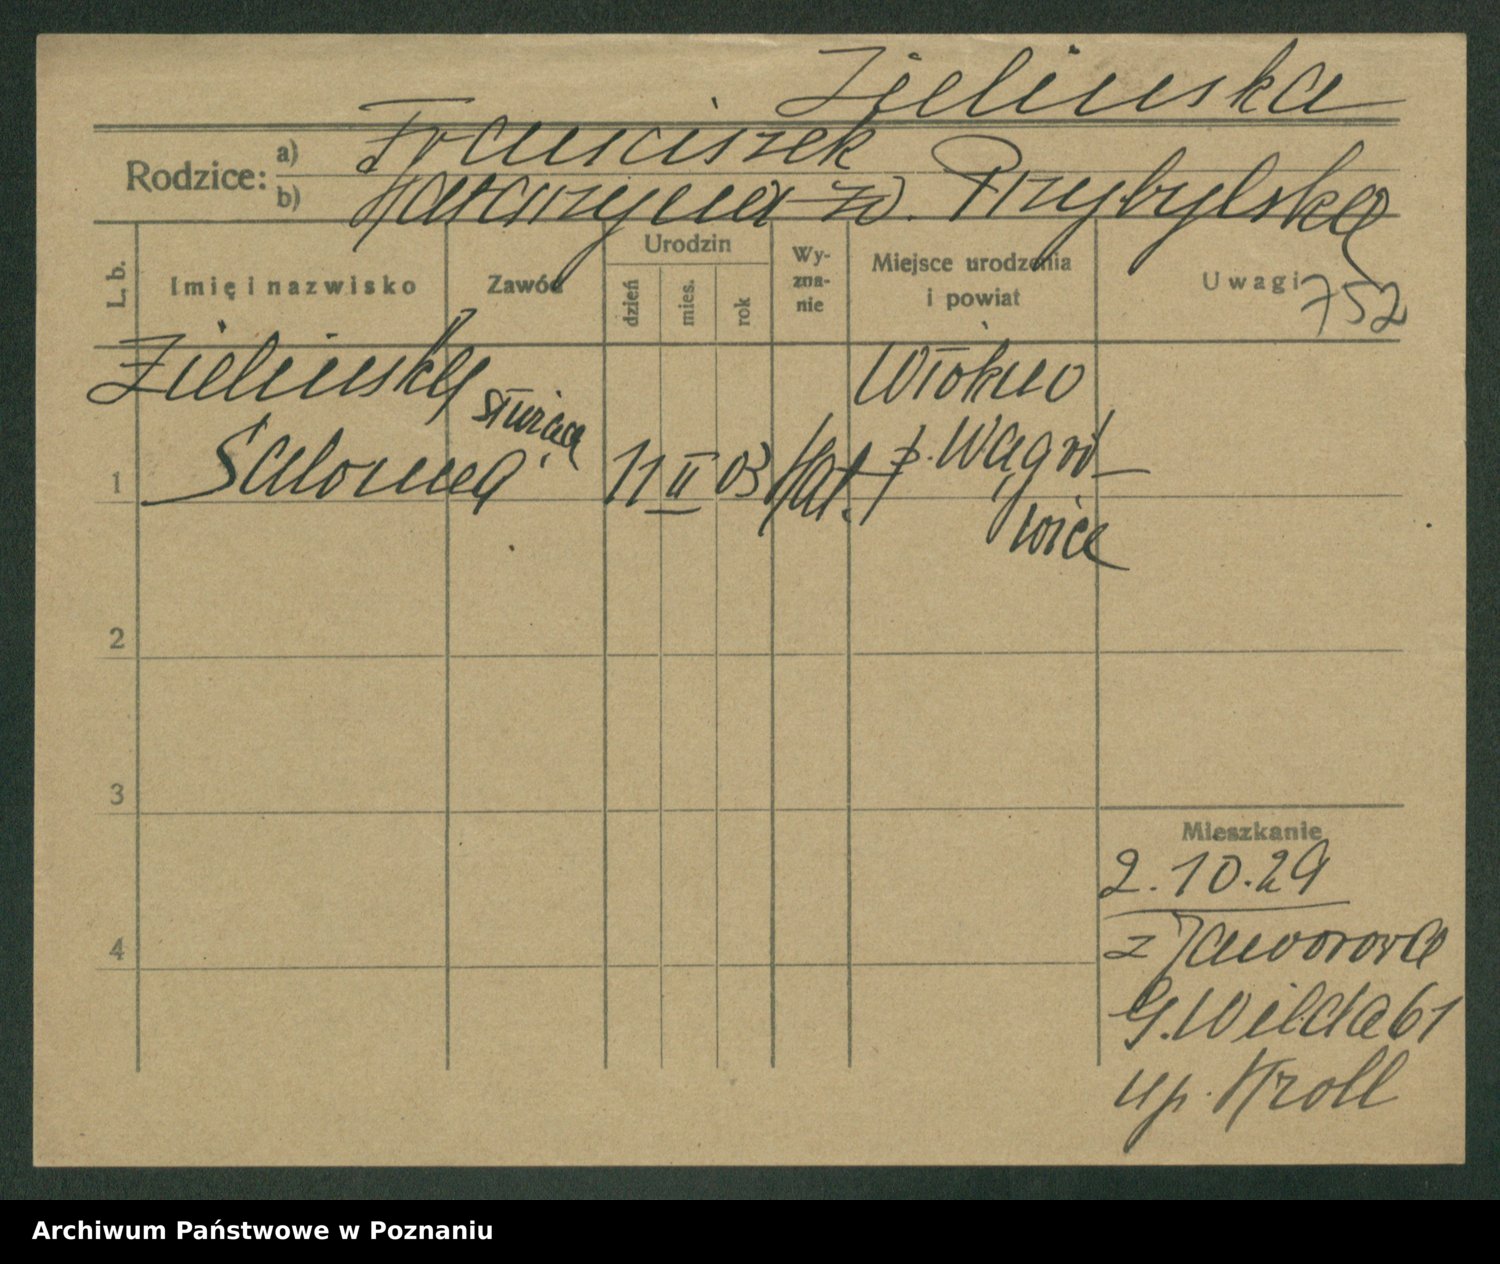 Zielinska
Rodzice: a) Franciszek
b) Katarzyna zd. Przybylska
L. b.
Imię i nazwisko
Zawód
Urodzin
dzień
mies.
rok
Wy-
zna-
nie
Miejsce urodzenia
i powiat
Uwagi
752
Zielinska
służąca
Włókno
1
Salomea
11 II 03 Kat.
p. Wągró-
wiec
2
3
4
Mieszkanie
2.10.29
z Jaworowa
G. Wilda 61
up. Kroll
Archiwum Państwowe w Poznaniu